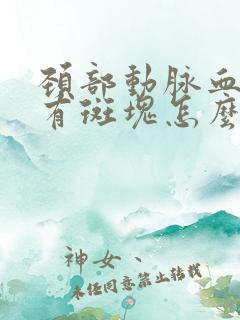 頸部動脉血
有斑塊怎麼
神女、
未经同意禁止转载